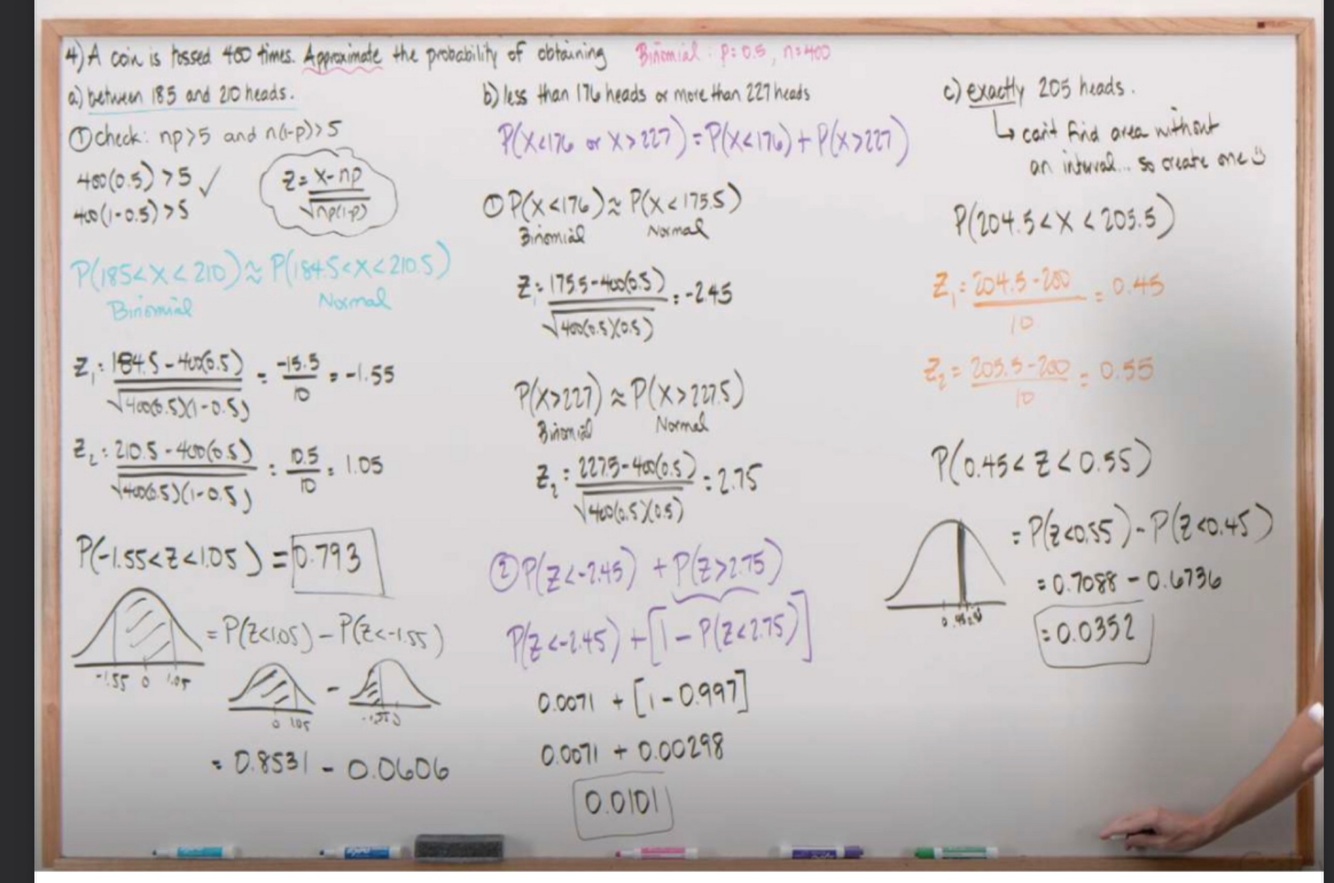 4) A coin is tossed 400 times. Approximate the probability of obtaining
Binomial: p=0.5, n=400
a) between 185 and 210 heads.
① check: np>5 and n(1-p)>5
400(0.5)>5 ✓
400(1-0.5)>5
Z = x-np / √np(1-p)
P(185<X<210) ≈ P(184.5<X<210.5)
Binomial Normal
Z₁ = 184.5-400(0.5) / √400(0.5)(1-0.5) = -15.5/10 = -1.55
Z₂ = 210.5-400(0.5) / √400(0.5)(1-0.5) = 10.5/10 = 1.05
P(-1.55<Z<1.05) = 0.793
-1.55 0 1.05
= P(Z<1.05) - P(Z<-1.55)
-
0 1.05
= 0.8531 - 0.0606
b) less than 176 heads or more than 227 heads
P(X<176 or X>227) = P(X<176) + P(X>227)
① P(X<176) ≈ P(X<175.5)
Binomial Normal
Z₁ = 175.5-400(0.5) / √400(0.5)(0.5) = -2.45
P(X>227) ≈ P(X>227.5)
Binomial Normal
Z₂ = 227.5-400(0.5) / √400(0.5)(0.5) = 2.75
② P(Z<-2.45) + P(Z>2.75)
P(Z<-2.45) + [1 - P(Z<2.75)]
0.0071 + [1-0.997]
0.0071 + 0.00298
0.0101
c) exactly 205 heads.
↳ can't find area without
an interval... so create one ☺
P(204.5<X<205.5)
Z₁ = 204.5-200 / 10 = 0.45
Z₂ = 205.5-200 / 10 = 0.55
P(0.45<Z<0.55)
= P(Z<0.55) - P(Z<0.45)
= 0.7088 - 0.6736
= 0.0352